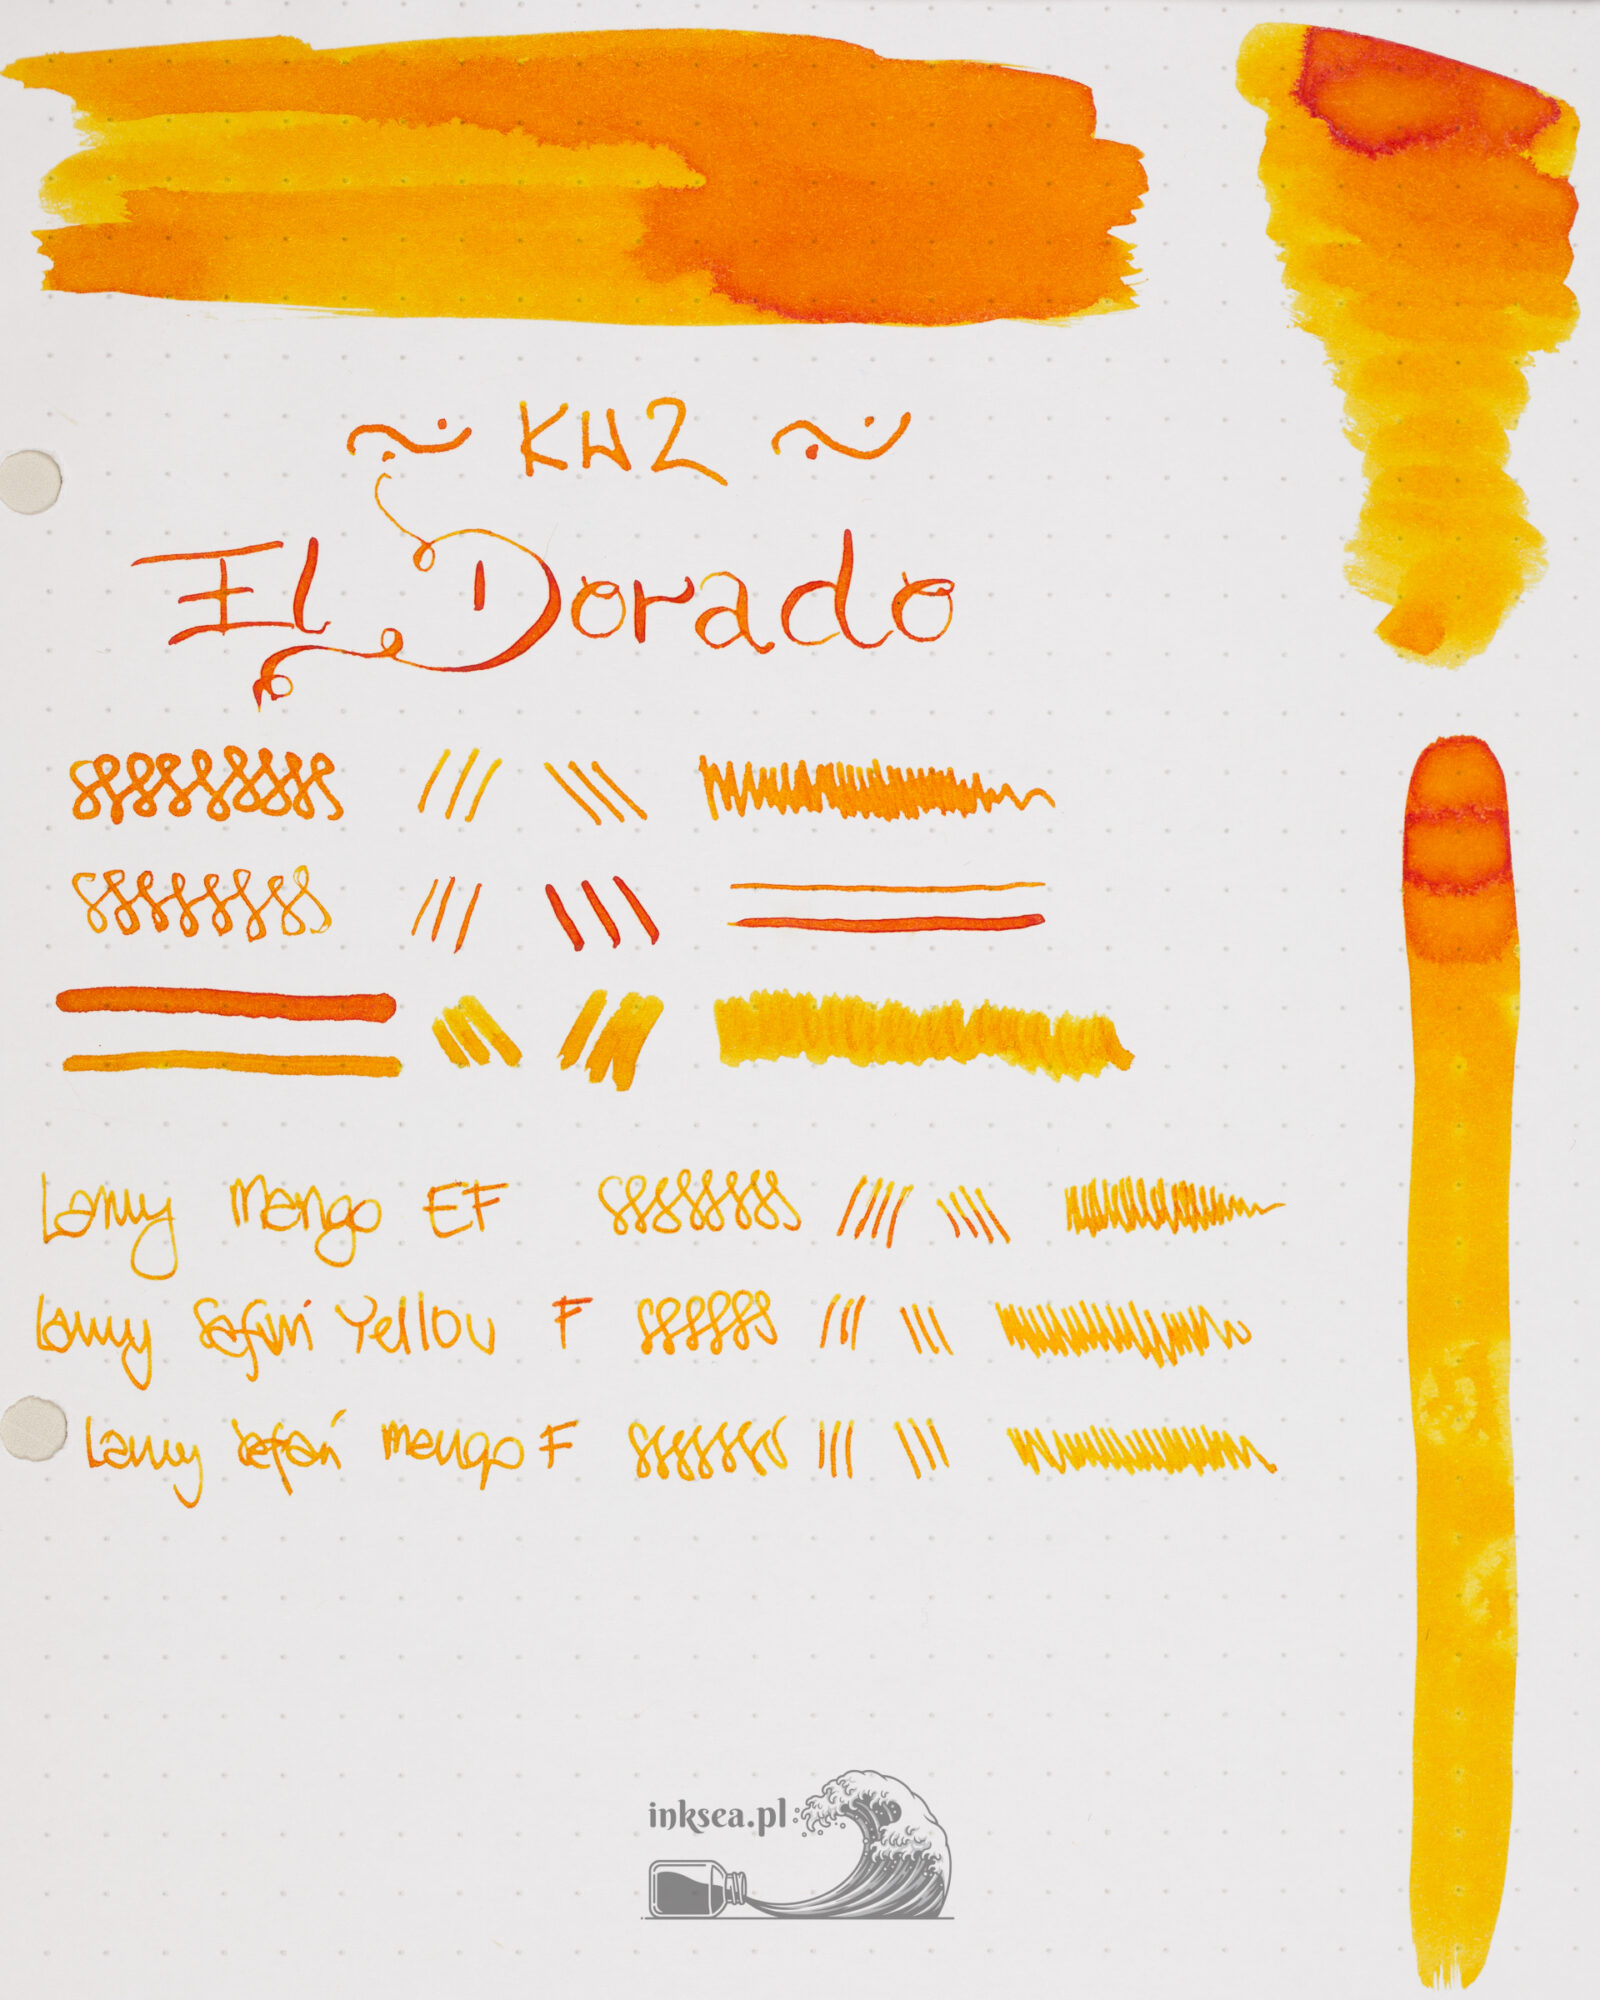 KWZ
El Dorado
Lamy Mango EF
Lamy Safari Yellow F
Lamy Safari Mango F
inksea.pl